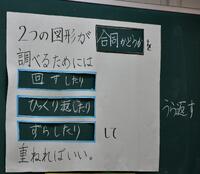 2つの図形が合同かどうかを
調べるためには
回すしたり
ひっくり返したり
ずらしたりして
重ねればいい。
うら返す